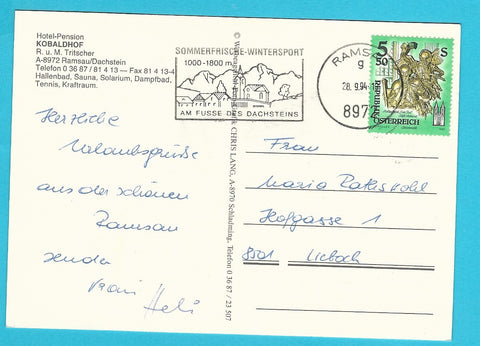 Hotel-Pension
KOBALDHOF
R. u. M. Tritscher
A-8972 Ramsau/Dachstein
Telefon 0 36 87 / 81 4 13 — Fax 81 4 13-4
Hallenbad, Sauna, Solarium, Dampfbad,
Tennis, Kraftraum.
SOMMERFRISCHE-WINTERSPORT
1000-1800 m
AM FUSSE DES DACHSTEINS
RAMSAU
g
28.9.94
8972
5 50 S
REPUBLIK
ÖSTERREICH
CHRIS LANG, A-8970 Schladming, Telefon 0 36 87 / 23 507
Herzliche
Urlaubsgrüße
aus der schönen
Ramsau
senden
Heli
Frau
Maria
Hofgasse 1
8501 Lieboch